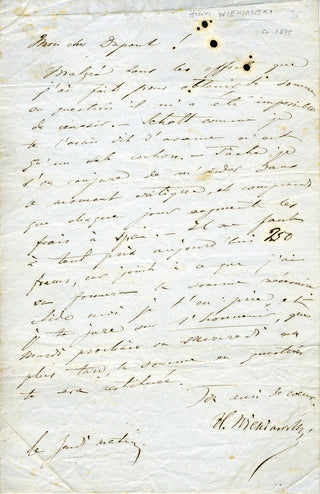 Henri WIENIAWSKI
ca. 1875
Mon cher Dupont !
Malgré tous les efforts que
j'ai fait pour obtenir la somme
en question il m'a été impossible
de réussir - Schott comme je
te l'avais dit d'avance n'est
qu'un sale cochon. -
de m'aider dans
ce moment critique, et comprend
que chaque jour augmente les
frais à - Il me faut
à tout prix aujourd'hui 250
francs, car joint à ce que j'ai
la somme nécessaire
Aide moi je t'en prie, et
je te jure sur l'honneur, que
mardi prochain ou mercredi au
plus tard, la somme en question
te sera restituée.
Ton ami de coeur
H. Wieniawski
le jeudi matin